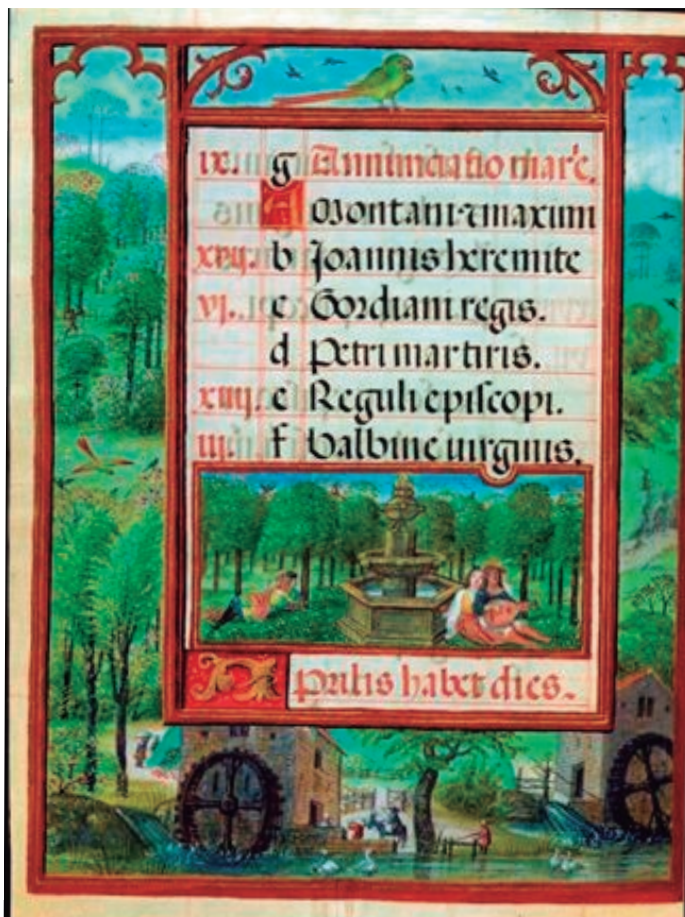 ix. g Annunciatio marie.
A Montani ⁊ maximi
xvij. b Joannis heremite
vj. c Gordiani regis.
d Petri martiris.
xiiij. e Reguli episcopi.
iij. f Balbine uirginis.
Aprilis habet dies.